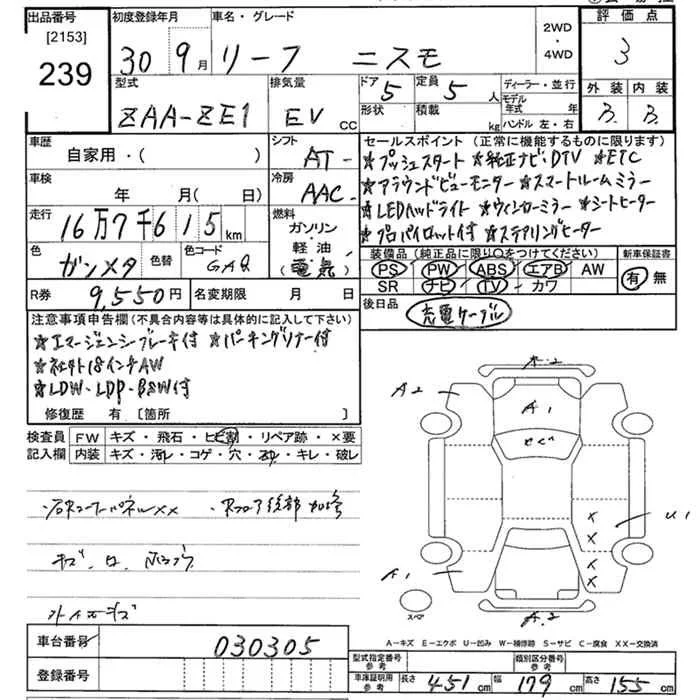 出品番号
[2153]
239
初度登録年月
30 9月
車名・グレード
リーフ ニスモ
2WD
・
4WD
評価点
3
外装 内装
3 3
型式
ZAA-ZE1
排気量
EV CC
ドア 5
定員 5 人
形状
積載 kg
ディーラー・並行
モデル年式 年
ハンドル 左・右
車歴
自家用・( )
シフト
AT-
車検
年 月(日)
冷房
AAC-
走行
16万7千615km
燃料
ガソリン
軽油
(電気)
色
ガンメタ
色替
色コード
GAQ
R券 9,550円
名変期限 月 日
セールスポイント(正常に機能するものに限ります)
★プッシュスタート ★純正ナビ・DTV ★ETC
★アラウンドビューモニター ★スマートルームミラー
★LEDヘッドライト ★ウィンカーミラー ★シートヒーター
★プロパイロット付 ★ステアリングヒーター
装備品(純正品に限り○をつけてください)
新車保証書
PS PW ABS エアB AW
SR ナビ TV カワ
有 無
後日品 充電ケーブル
注意事項申告欄(不具合内容等は具体的に記入して下さい)
★エマージェンシーブレーキ付 ★パーキングソナー付
★社外18インチAW
★LDW・LDP・BSW付
修復歴 有 [箇所 ]
検査員記入欄
FW キズ・飛石・ヒビ割・リペア跡・×要
内装 キズ・汚レ・コゲ・穴・スレ・キレ・破レ
A2
A1
A2
U1
A1
A2
スペア
A-キズ E-エクボ U-凹み W-補修跡 S-サビ C-腐食 XX-交換済
車台番号 030305
登録番号
型式指定番号 参考
類別区分番号 参考
車庫証明用 参考
長さ 451cm 幅 179cm 高さ 155cm